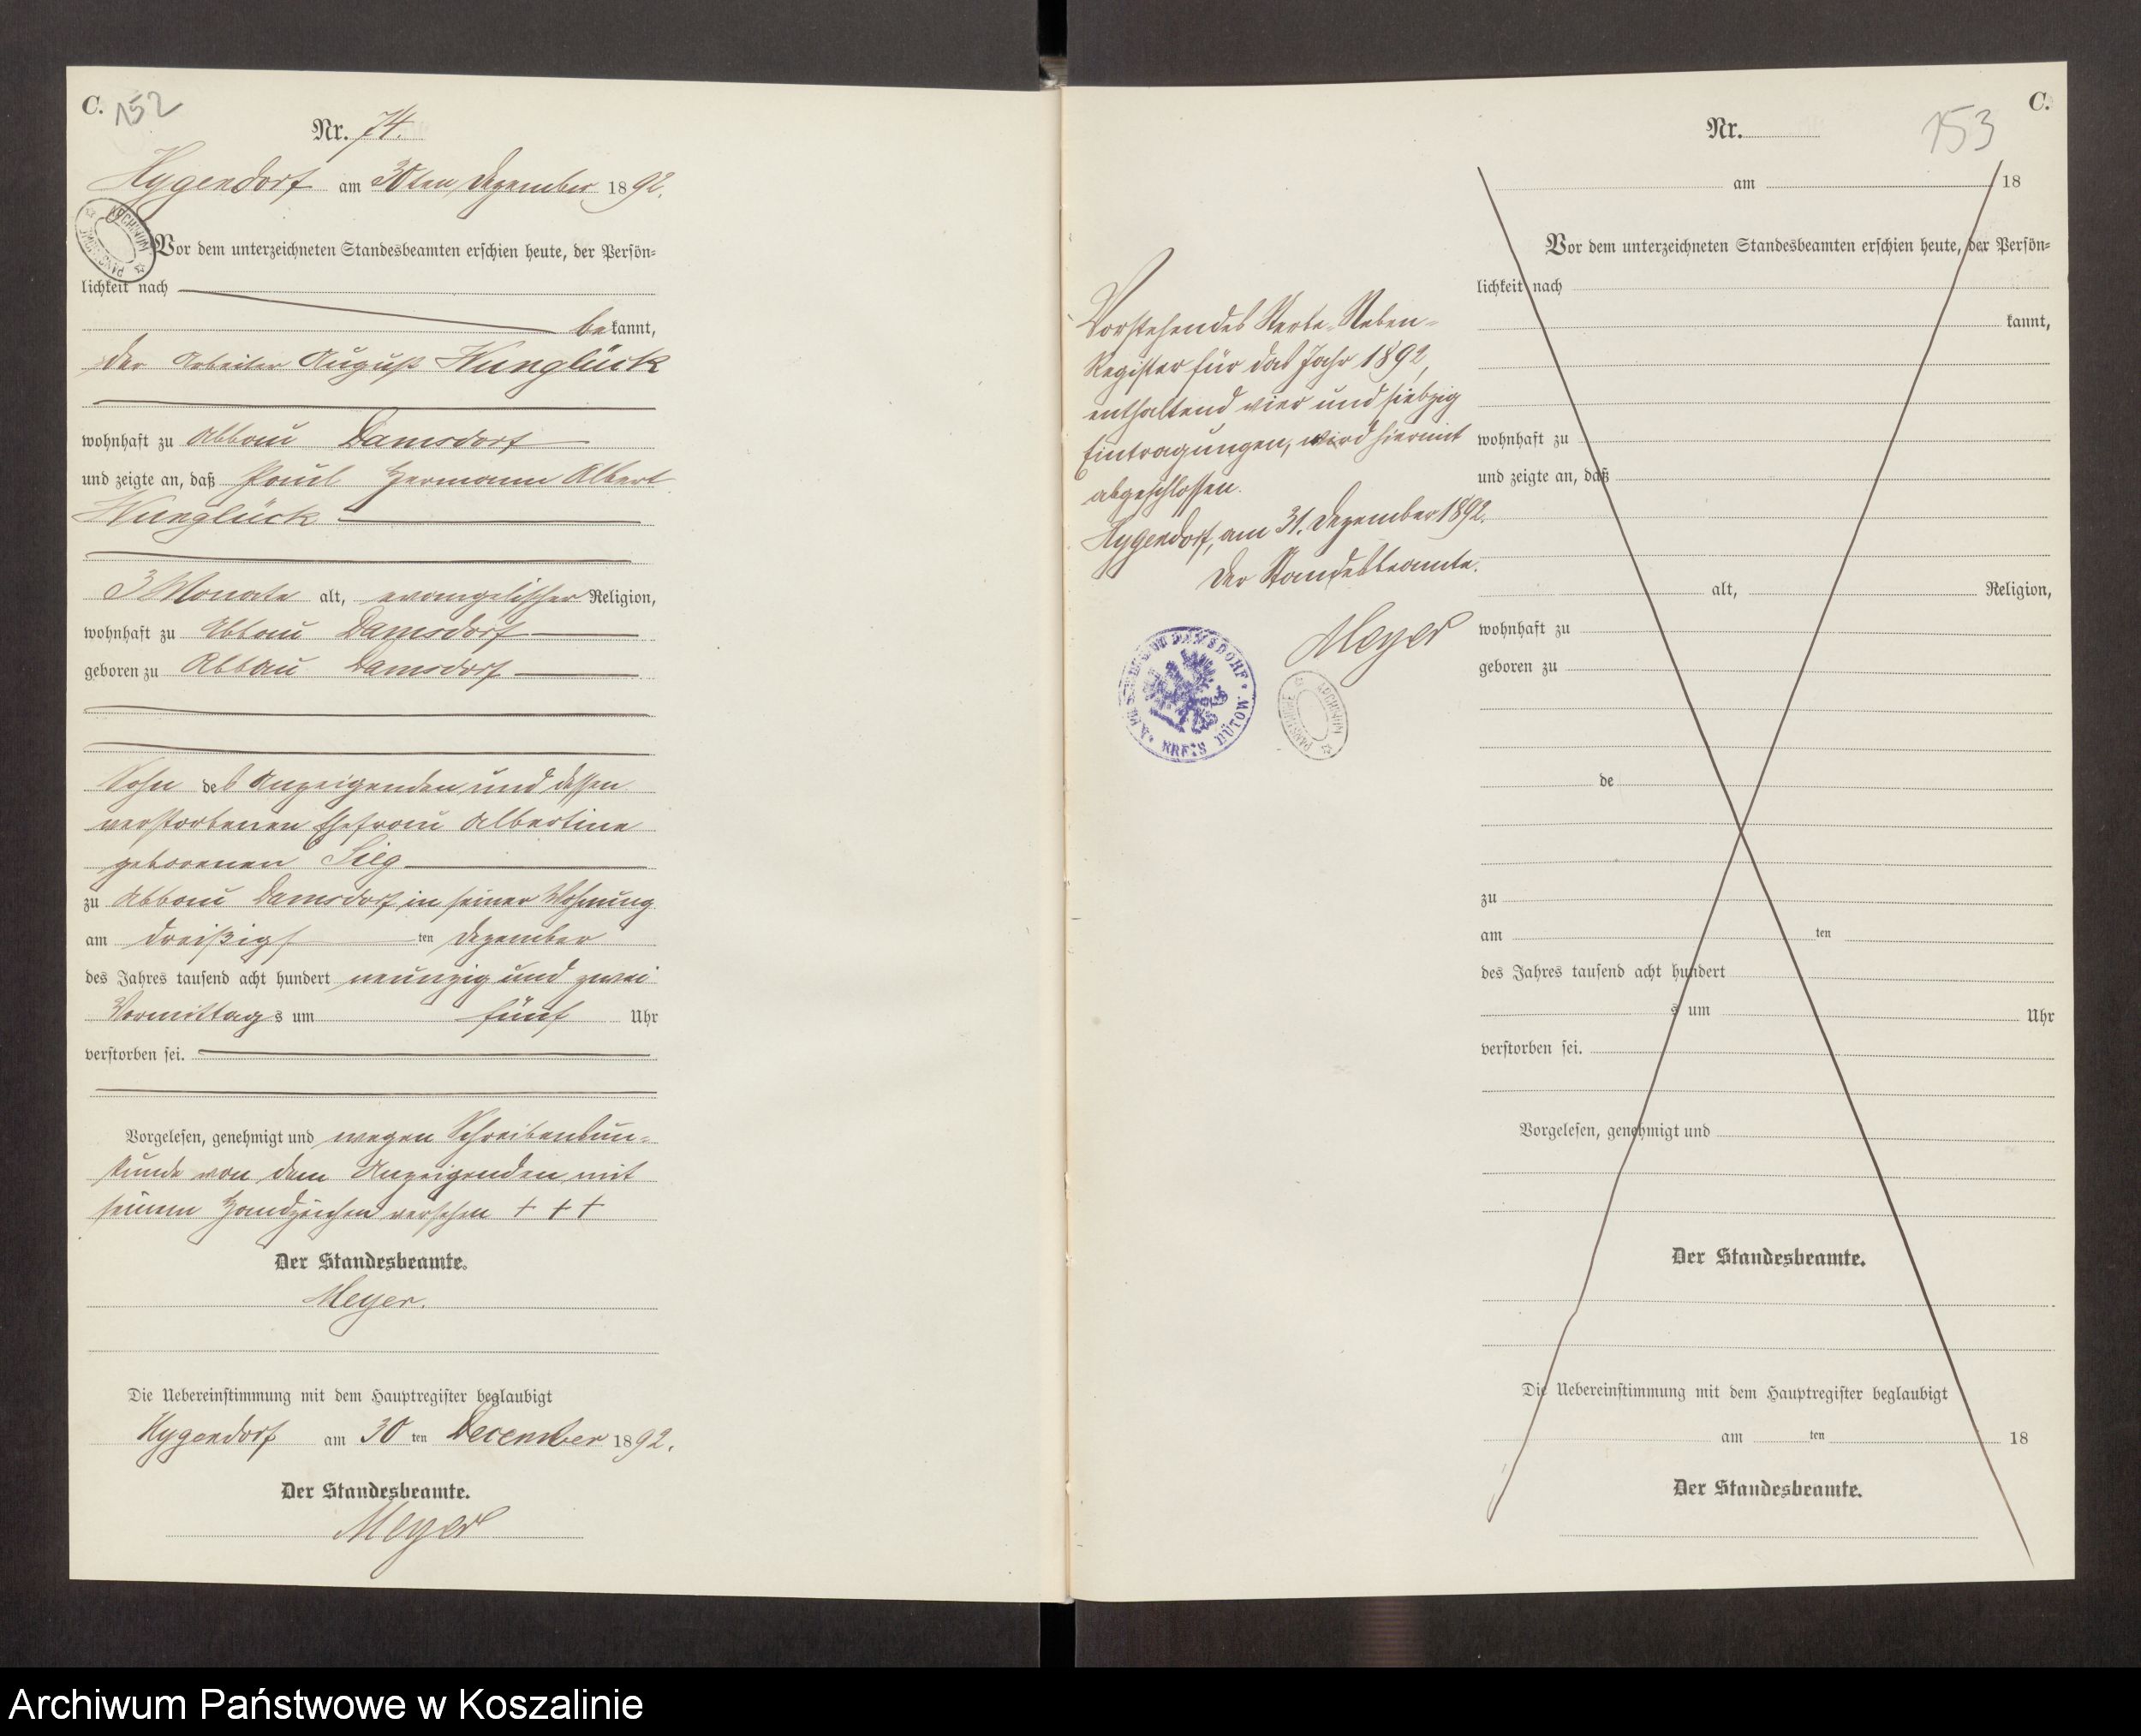 C. 152
Nr. 74.
Hygendorf am 30ten Dezember 1892.
ARCHIWUM PAŃSTWOWE
Vor dem unterzeichneten Standesbeamten erschien heute, der Persön=
lichkeit nach
bekannt,
der Arbeiter August Wunglück
wohnhaft zu Abbau Damsdorf
und zeigte an, daß Paul Hermann Albert
Wunglück
3 Monate alt, evangelischer Religion,
wohnhaft zu Abbau Damsdorf
geboren zu Abbau Damsdorf
Sohn des Anzeigenden und dessen
verstorbenen Ehefrau Albertine
geborenen Sieg
zu Abbau Damsdorf, in seiner Wohnung
am dreißigsten Dezember
des Jahres tausend acht hundert neunzig und zwei
Vormittags um fünf Uhr
verstorben sei.
Vorgelesen, genehmigt und wegen Schreibensun=
kunde von dem Anzeigenden mit
seinem Handzeichen versehen + + +
Der Standesbeamte.
Meyer.
Die Uebereinstimmung mit dem Hauptregister beglaubigt
Hygendorf am 30 ten December 1892.
Der Standesbeamte.
Meyer
Vorstehendes Sterbe-Neben=
Register für das Jahr 1892,
enthaltend vier und siebzig
Eintragungen, wird hiermit
abgeschlossen.
Hygendorf, am 31. Dezember 1892.
Der Standesbeamte.
Meyer
DAMSDORF * KREIS BÜTOW *
ARCHIWUM PAŃSTWOWE
C.
153
Nr.
am 18
Vor dem unterzeichneten Standesbeamten erschien heute, der Persön=
lichkeit nach
kannt,
wohnhaft zu
und zeigte an, daß
alt, Religion,
wohnhaft zu
geboren zu
de
zu
am ten
des Jahres tausend acht hundert
s um Uhr
verstorben sei.
Vorgelesen, genehmigt und
Der Standesbeamte.
Die Uebereinstimmung mit dem Hauptregister beglaubigt
am ten 18
Der Standesbeamte.
Archiwum Państwowe w Koszalinie